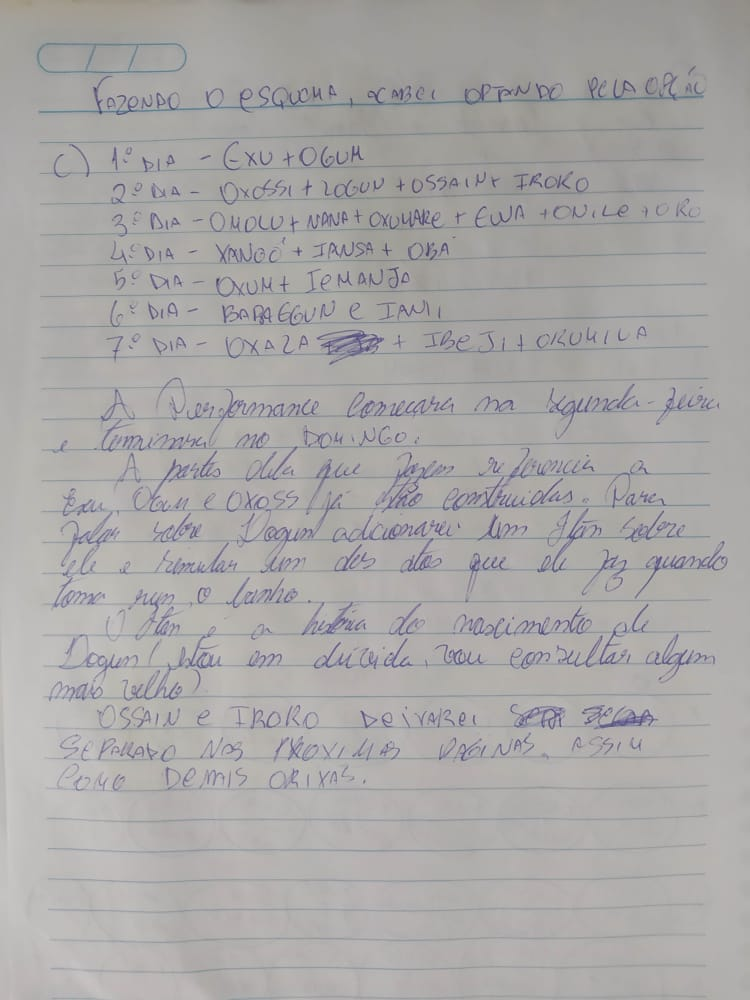 FAZENDO O ESQUEMA, ACABEI OPTANDO PELA OPÇÃO
C) 1º DIA - EXU + OGUM
2º DIA - OXOSSI + LOGUN + OSSAIN + IROKO
3º DIA - OMOLU + NANA + OXUMARE + EWA + ONILE + ORO
4º DIA - XANGÓ + IANSA + OBÁ
5º DIA - OXUM + IEMANJA
6º DIA - BABAEGUN E IAMI
7º DIA - OXALA + IBEJI + ORUMILA
A Performance começara na segunda-feira
e terminara no DOMINGO.
A partes dela que fazem referencia a
Exu, OGUM e OXOSS já são construidas. Para
falar sobre Logun adicionarei um Itan sobre
ele e simular um dos atos que ele faz quando
toma run, o banho.
O Itan é a história do nascimento de
Logun (Estou em dúvida, vou consultar algum
mais velho)
OSSAIN e IROKO DEIXAREI
SEPARADO NAS PROXIMAS PAGINAS, ASSIM
COMO DEMIS ORIXAS.